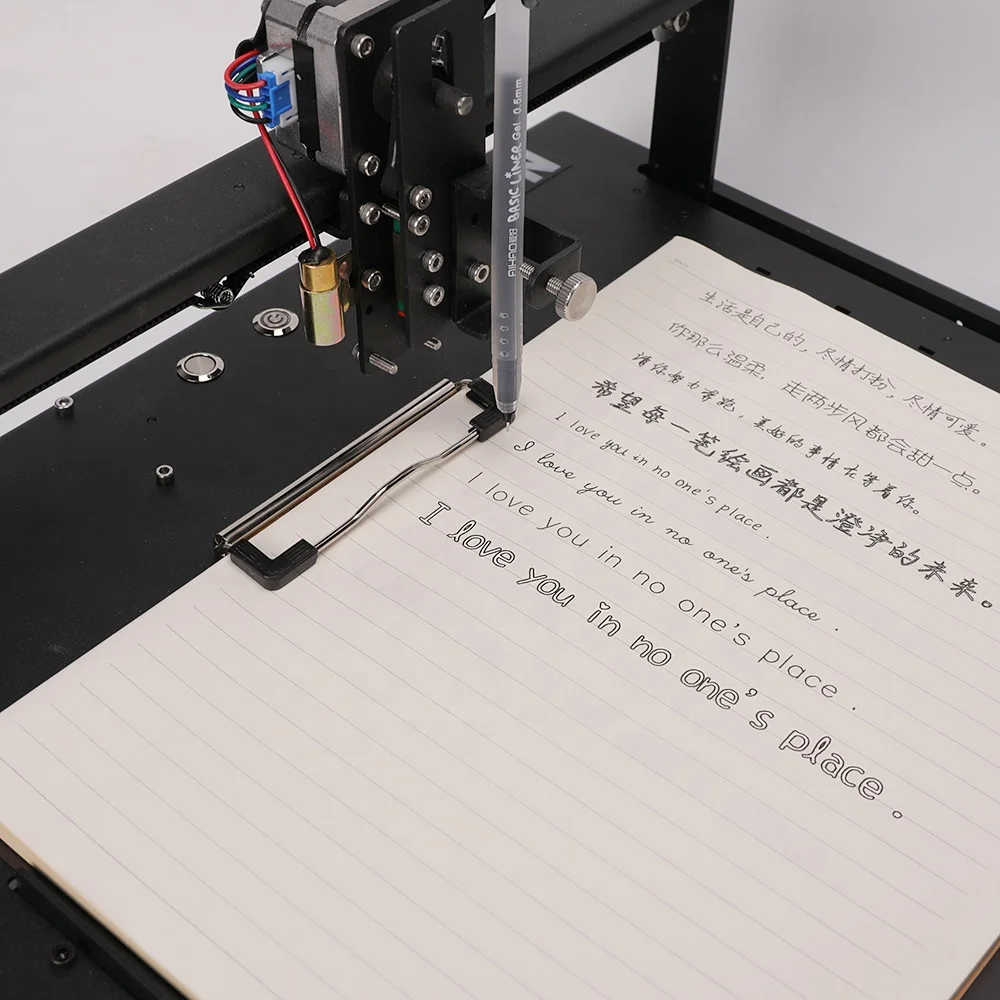 生活是自己的，尽情打扮，尽情可爱。
你那么温柔，走两步风都会甜一点。
请你努力奔跑，美好的事情在等着你。
希望每一笔绘画都是澄净的未来。
I love you in no one's place .
I love you in no one's place .
I love you in no one's place .
I love you in no one's place .
AIHAO爱好 BASIC LINER Gel 0.5mm